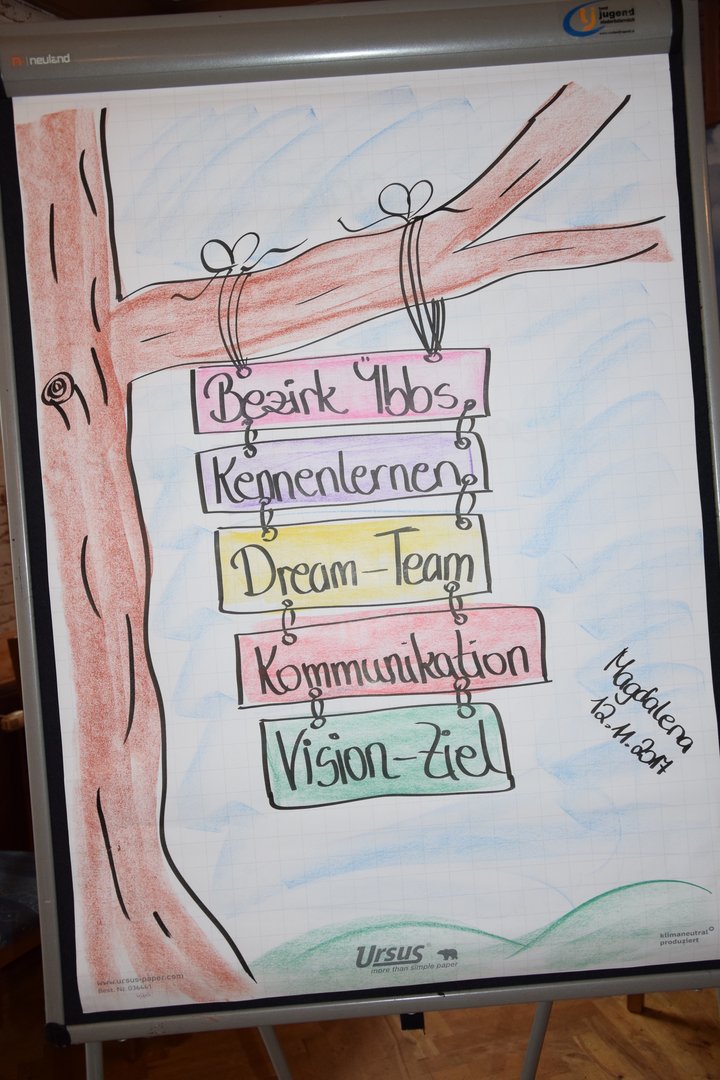 neuland
jugend
Bezirk Ybbs
Kennenlernen
Dream-Team
Kommunikation
Vision-Ziel
Magdalena
12.11.2017
Ursus
more than simple paper
klimaneutral
produziert
www.ursus-paper.com
Best. Nr. 036441